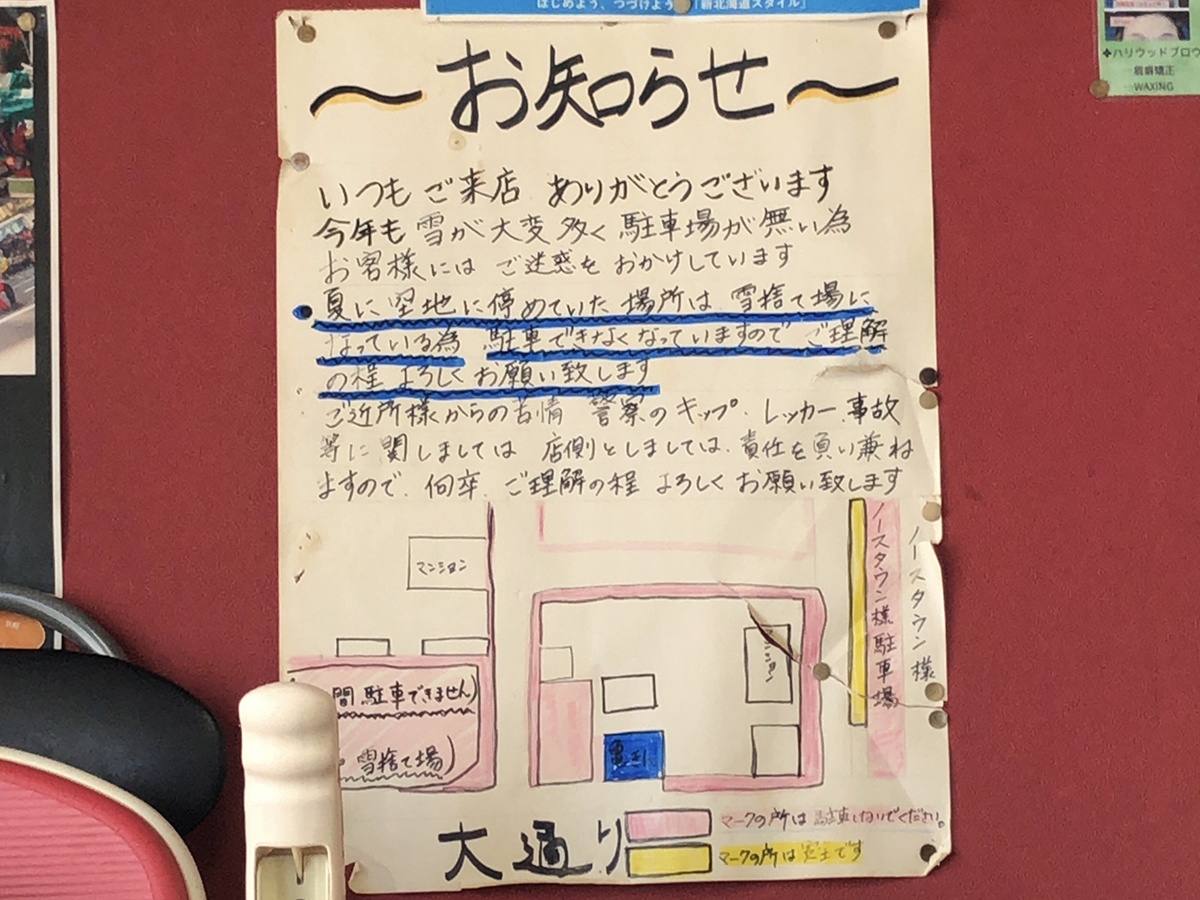 はじめよう、つづけよう 「新北海道スタイル」
～お知らせ～
いつもご来店 ありがとうございます
今年も雪が大変多く駐車場が無い為
お客様には ご迷惑をおかけしています
夏に空地に停めていた場所は 雪捨て場に
なっている為 駐車できなくなっていますので ご理解
の程 よろしくお願い致します
ご近所様からの苦情 警察のキップ、レッカー、事故
等に関しましては 店側としましては、責任を負い兼ね
ますので、何卒、ご理解の程 よろしくお願い致します
マンション
間駐車できません)
雪捨て場)
ノースタウン様駐車場
ノースタウン様
大通り
マークの所は 駐車しないでください。
マークの所は です
ハリウッドブロウ
眉癖矯正
WAXING